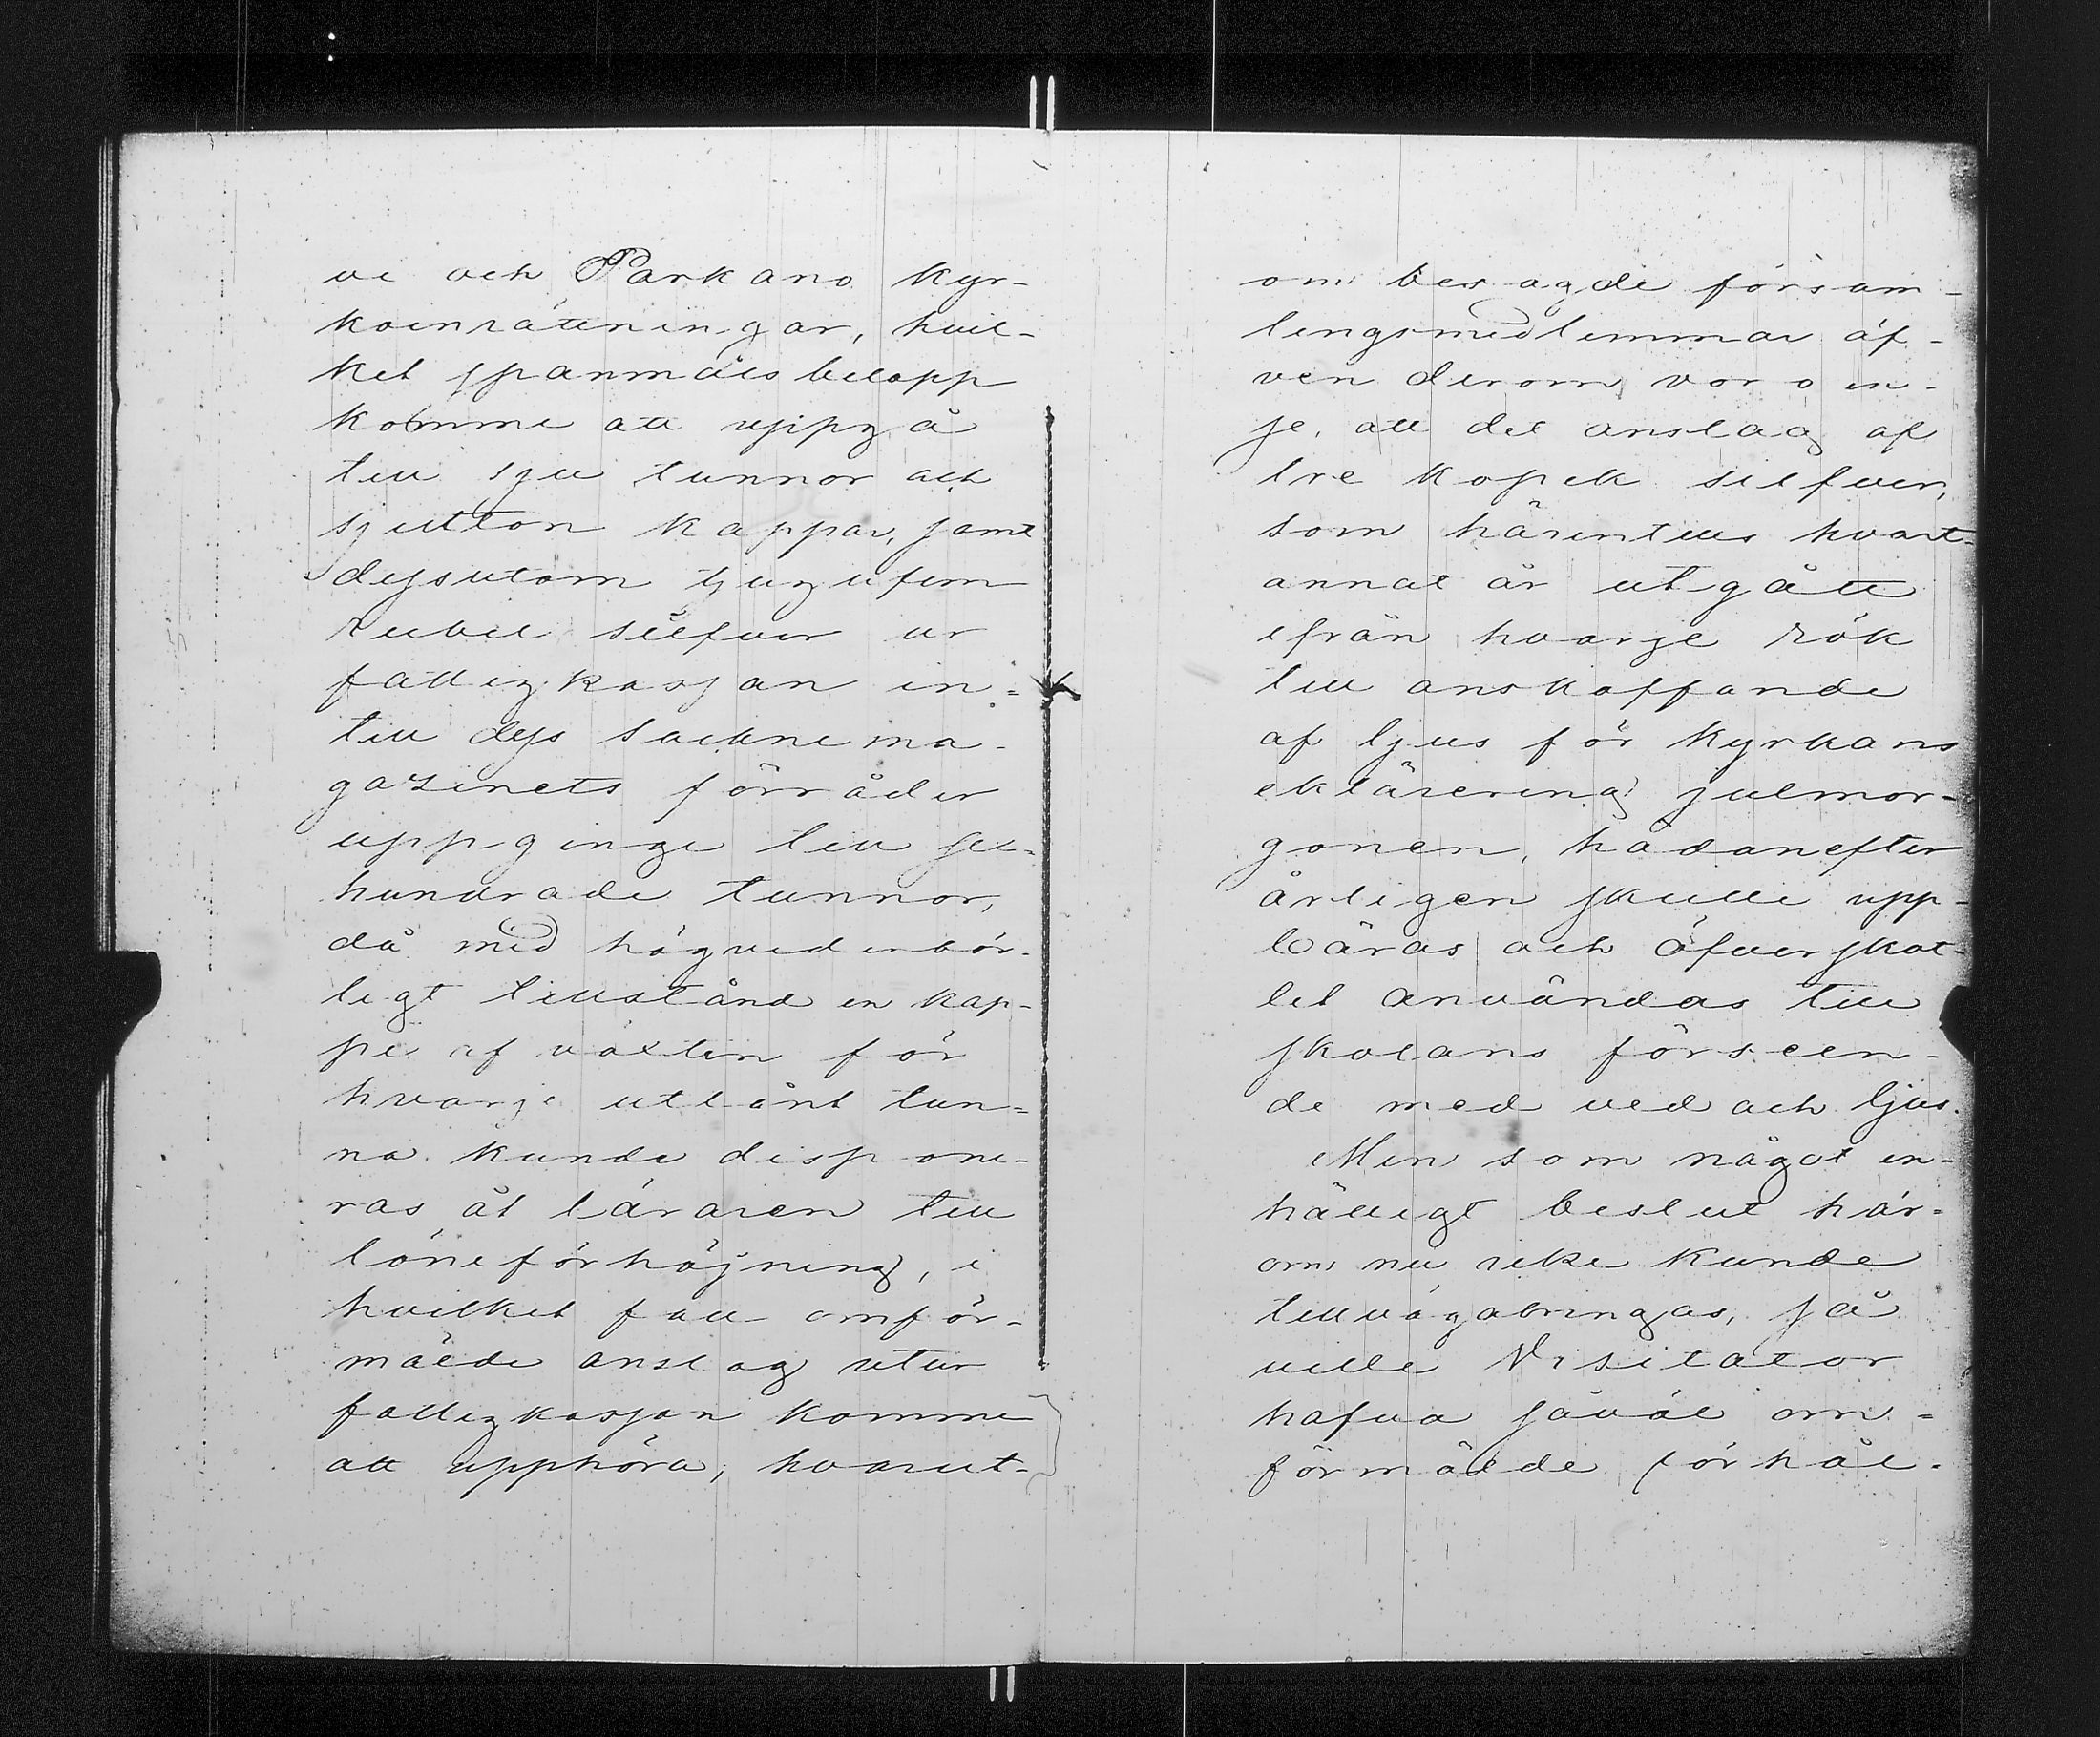 vi och Parkano kyr-
koinrättningar, hvil-
ket spanmåls belopp
komme att uppgå
till sju tunnor och
sjutton kappar, samt
dessutom tjugufem
rubel silfver ur
fattigkassan in-
till dess sockne ma-
gazinets förråder
uppginge till sex-
hundrade tunnor,
då med högvederbör-
ligt tillstånd en kap-
pe af växten för
hvarje utlånt tun-
na kunde dispone-
ras åt läraren till
löneförhöjning, i
hvilket fall omför-
mälde anslag utur
fattigkassan komme
att upphöra; hvarut-
om besagde försam-
lingsmedlemmar äf-
ven derom voro en-
se, att det anslag af
tre kopek silfver,
som härintills hvart-
annat år utgått
ifrån hvarje rök
till anskaffande
af ljus för kyrkans
eklärering julmor-
gonen, hädanefter
årligen skulle upp-
bäras och öfverskot-
tet användas till
skolans förseen-
de med ved och ljus.
Men som något en-
hälligt beslut här-
om nu icke kunde
tillvägabringas, så
ville Visitator
hafva såväl om-
förmälde förhål-